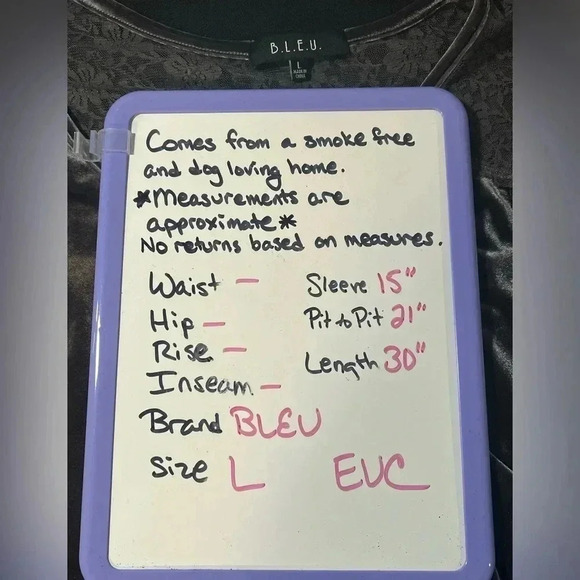 B.L.E.U.
L
MADE IN
CHINA
Comes from a smoke free
and dog loving home.
*Measurements are
approximate*
No returns based on measures.
Waist - Sleeve 15"
Hip - Pit to Pit 21"
Rise - Length 30"
Inseam -
Brand BLEU
Size L EUC